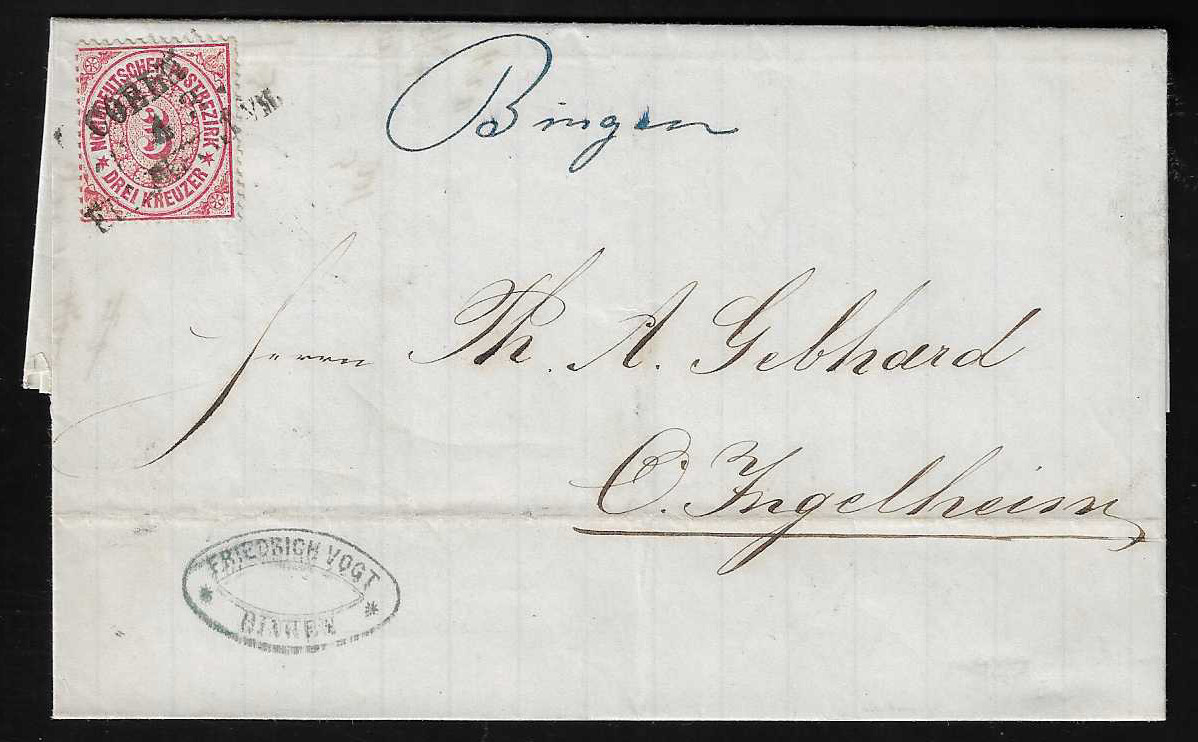 NORDDEUTSCHER POSTBEZIRK
3
DREI KREUZER
4
Bingen
Herrn Th. A. Gebhard
O. Ingelheim
FRIEDRICH VOGT
BINGEN